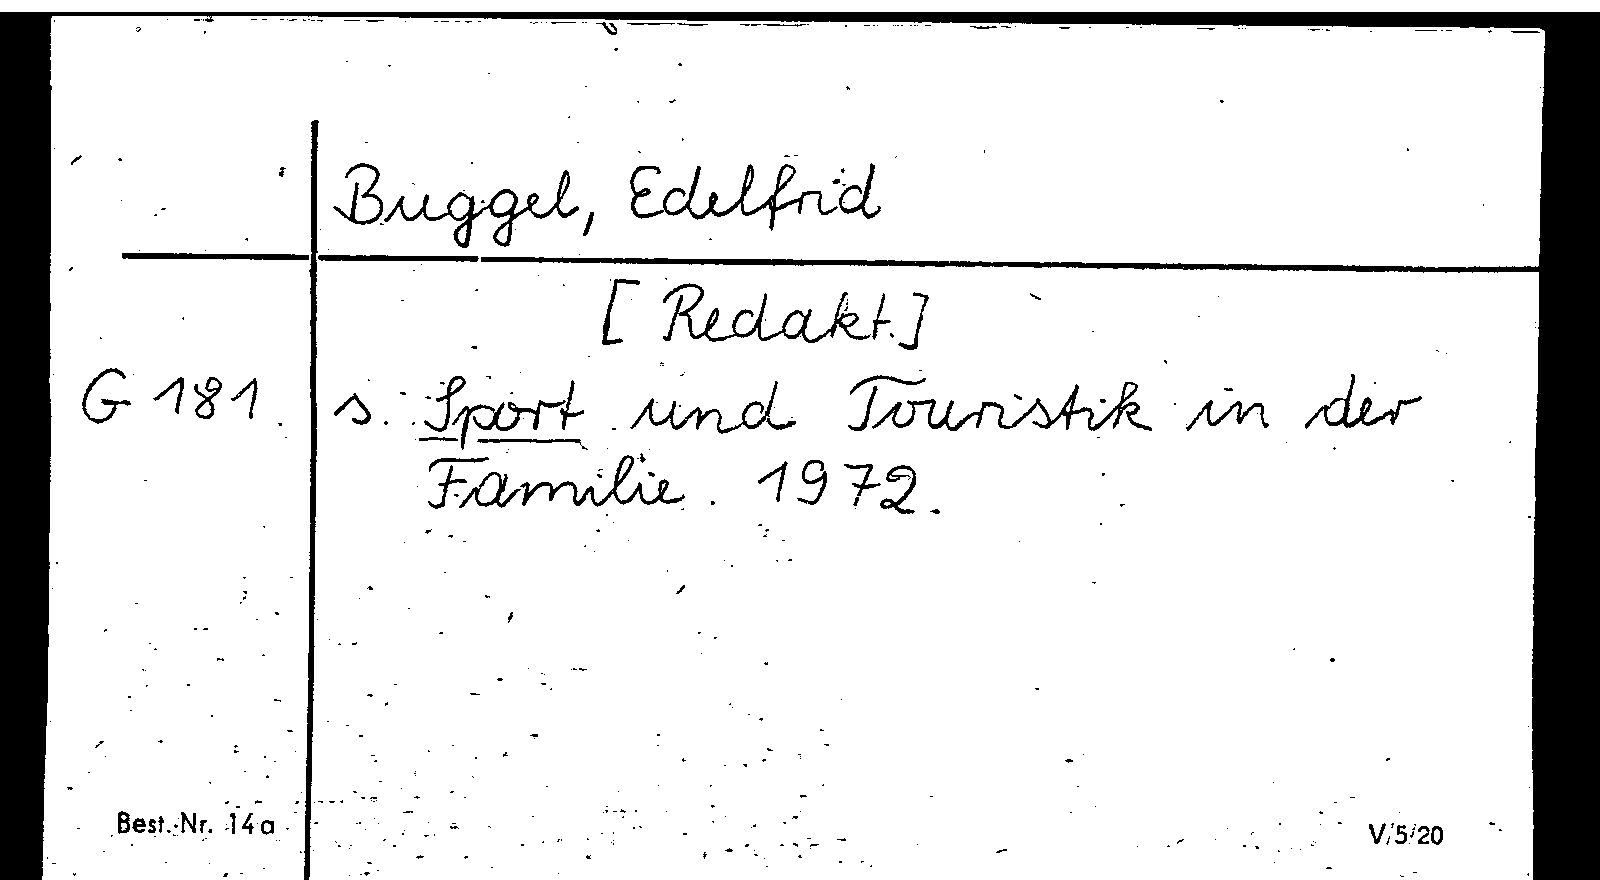 Buggel, Edelfrid
[Redakt.]
G 181 s. Sport und Touristik in der
Familie. 1972.
Best.-Nr. 14a V/5/20